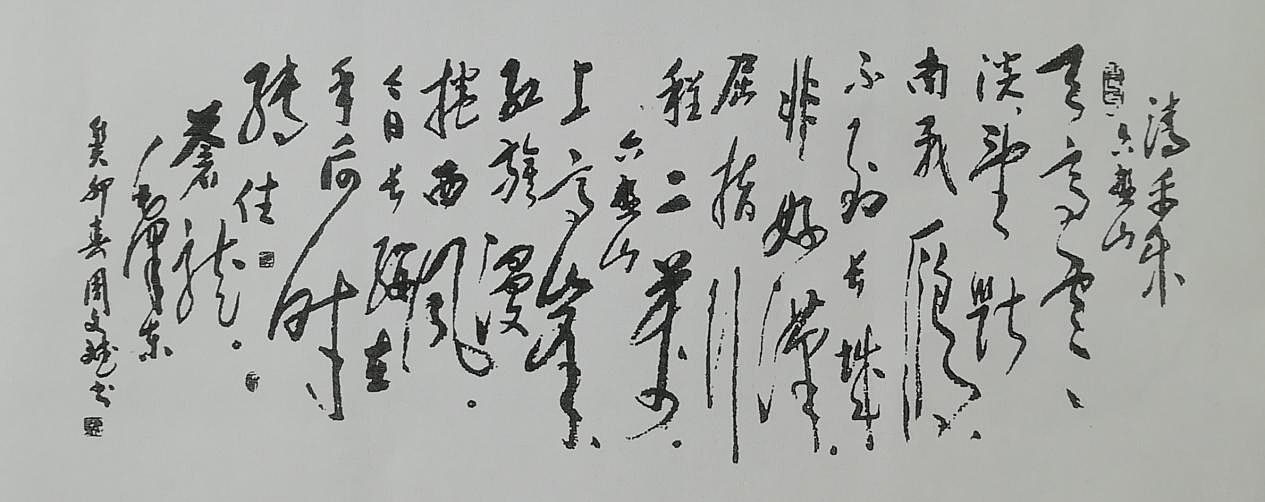 清平乐
六盘山
天高云、
淡、望断
南飞雁、
不到长城
非好汉。
屈指行
程二万。
六盘山
上高峰、
红旗漫
捲西风。
今日长缨在
手、何时
缚住
苍龙。
毛泽东
癸卯春周文书